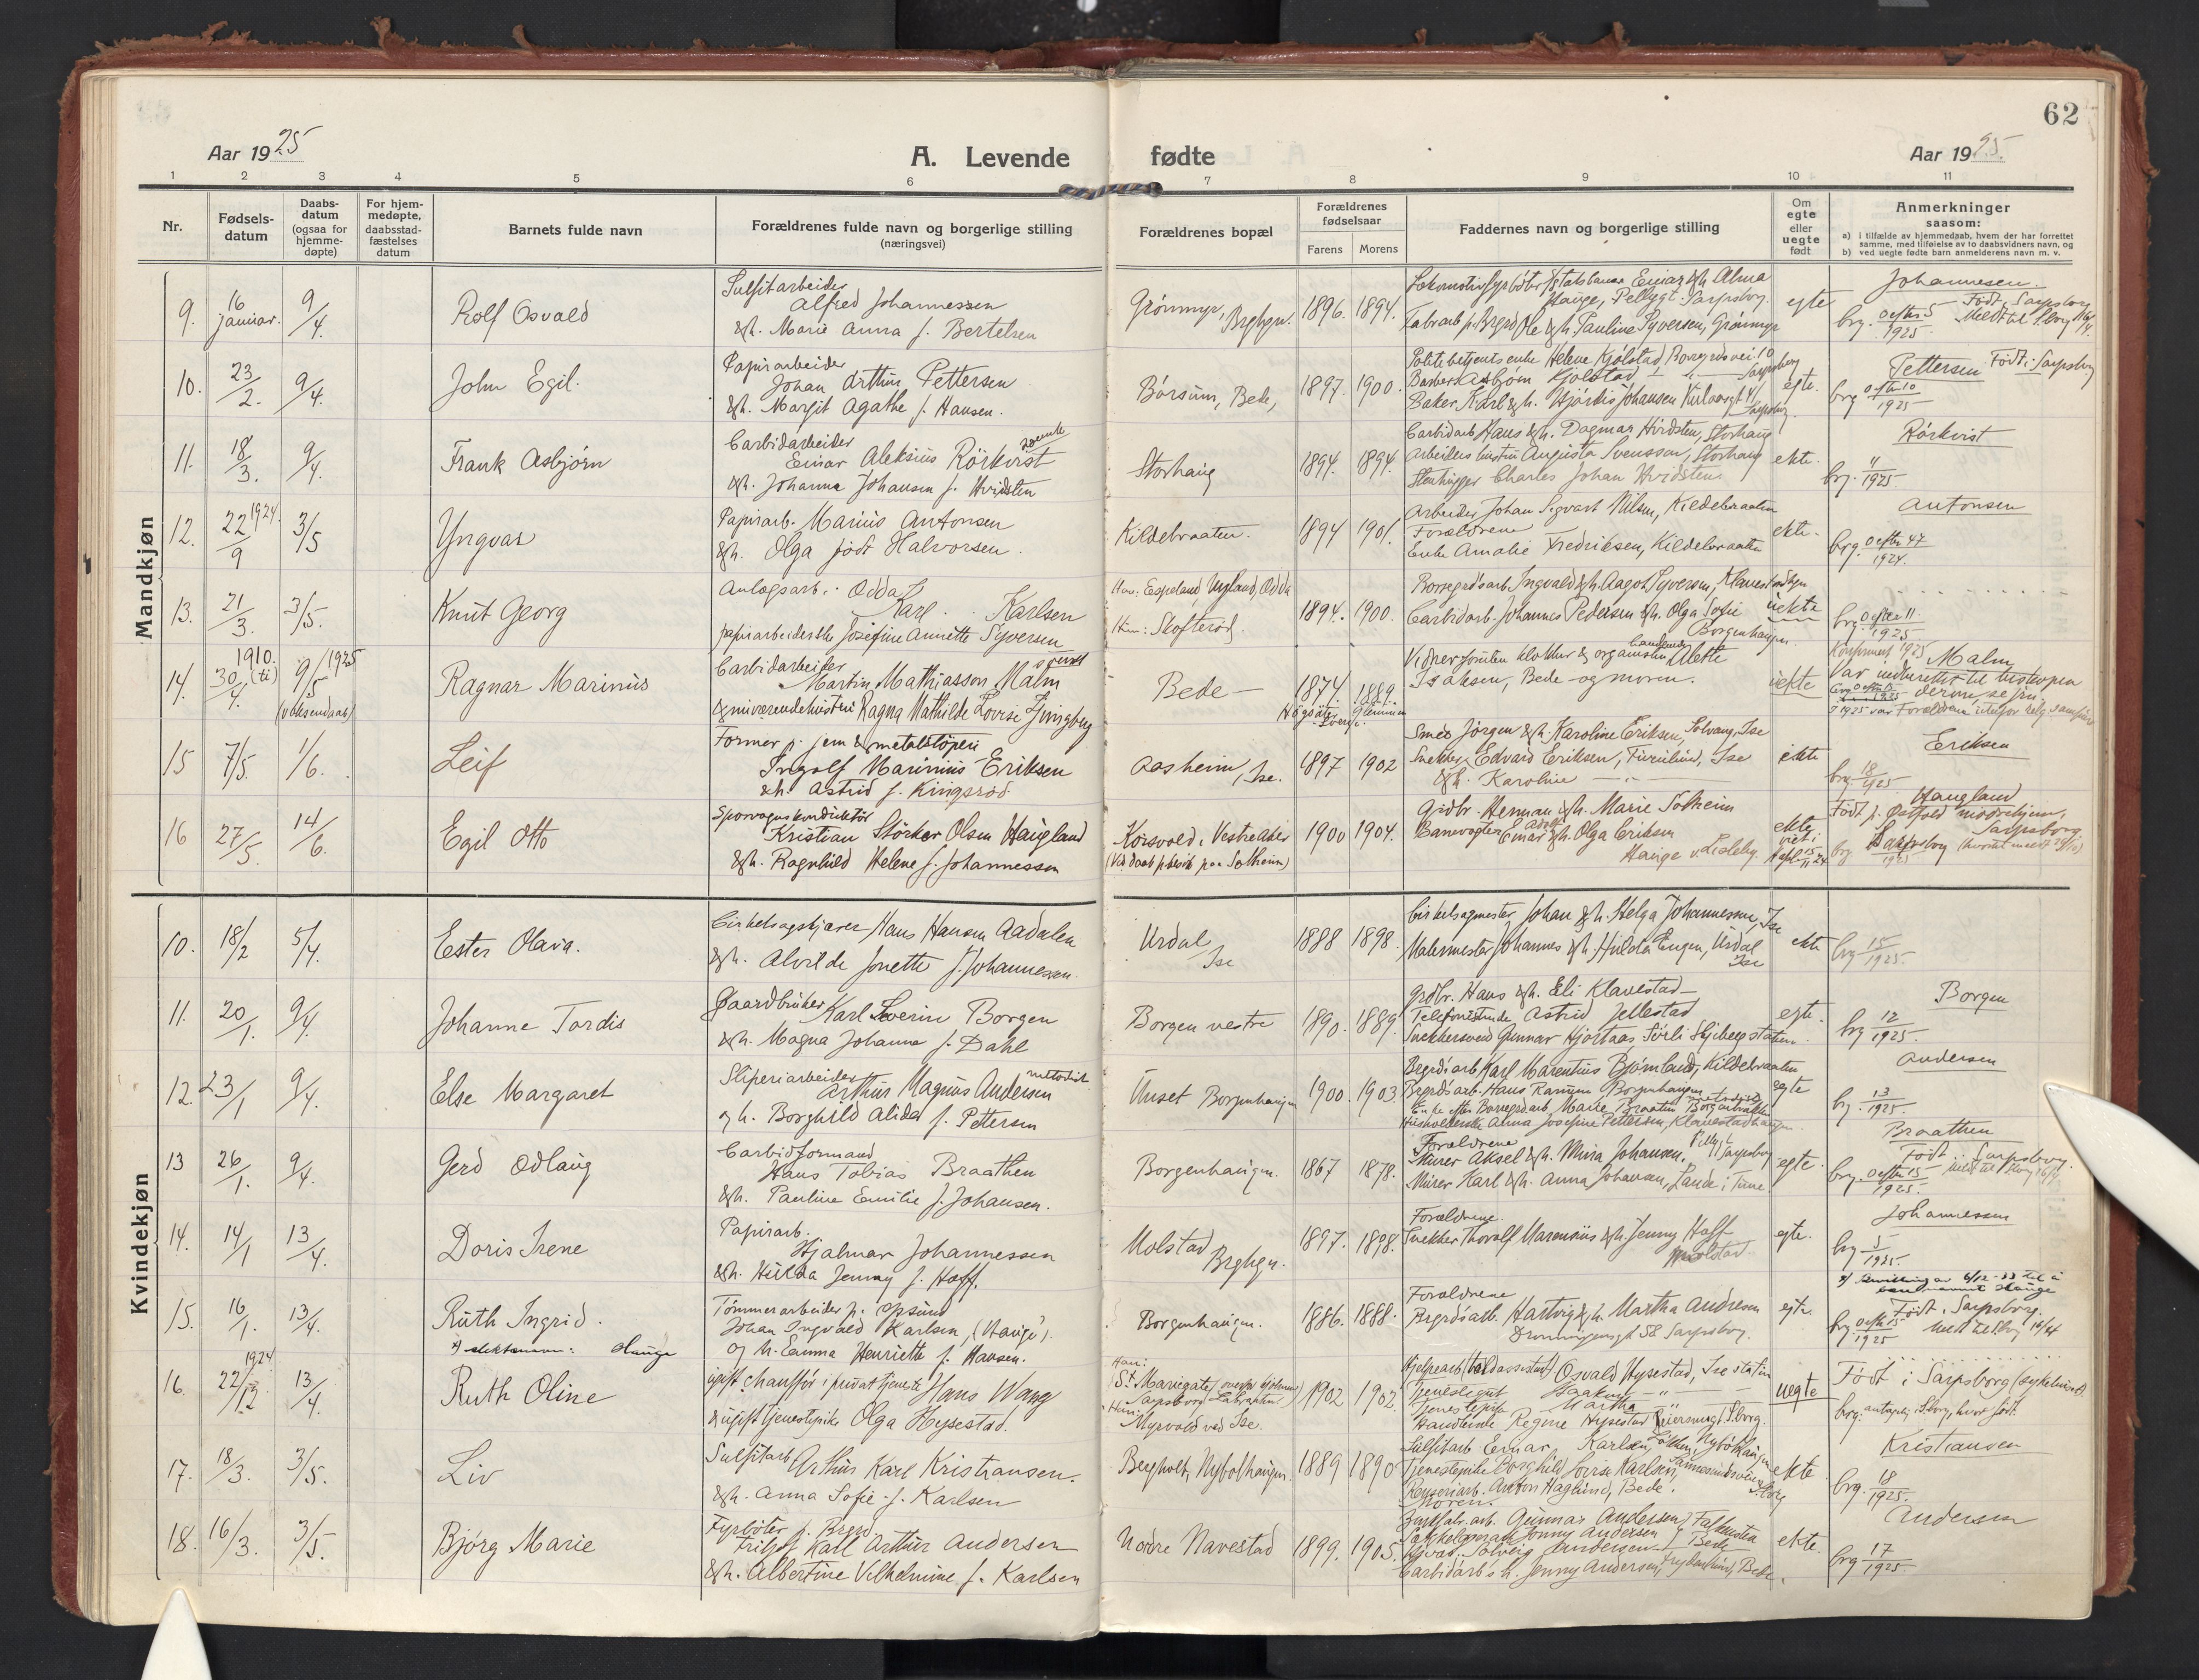 62
Aar 1925
A. Levende fødte
Aar 1925.
1 2 3 4 5 6 7 8 9 10 11
Nr.
Fødsels-
datum
Daabs-
datum
(ogsaa for
hjemme-
døpte)
For hjem-
medøpte,
daabsstad-
fæstelses
datum
Barnets fulde navn
Forældrenes fulde navn og borgerlige stilling
(næringsvei)
Forældrenes bopæl
Forældrenes
fødselsaar
Farens Morens
Faddernes navn og borgerlige stilling
Om
egte
eller
uegte
født
Anmerkninger
saasom:
a) i tilfælde av hjemmedaab, hvem der har forrettet
samme, med tilføielse av to daabsvidners navn, og
b) ved uegte fødte barn anmelderens navn m. v.
Mandkjøn
9. 16 januar. 9/4. Rolf Osvald
Sulfitarbeider
Alfred Johannessen
&h. Marie Anna f. Bertelsen
Grönmyr, Brghgn. 1896. 1894.
Hauge, Pellygt. Sarpsborg.
Pauline Syversen, Grönmyr
egte
Johannesen.
Födt i Sarpsborg
brg. 5/1925
10. 23/2. 9/4. John Egil.
Papirarbeider
Johan Arthur Pettersen
&h. Margit Agathe f. Hansen.
Börsum, Bede, 1897. 1900.
Politibetjents enke Helene Kjölstad, Borregrdsvei 10
Asbjörn Kjölstad Sarpsborg
Baker Karl &h. Hjördis Johansen
egte.
Pettersen Födt i Sarpsborg
brg 10/1925
11. 18/3. 9/4. Frank Asbjörn
Carbidarbeider
Einar Aleksius Rörkvist svensk
&h. Johanna Johansen f. Hvidsten
Storhaug 1894. 1894.
Carbidarb Hans &h. Dagmar Hvidsten, Storhaug
Arbeiders hustru Augusta Svensson, Storhaug
Stenhugger Charles Johan Hvidsten
ekte.
Rörkvist
brg. 11/1925
12. 22/9 1924. 3/5 Yngvar
Papirarb. Marius Antonsen
&h. Olga født Halvorsen.
Kildebraaten. 1894 1901.
Arbeider Johan Sigvart Nilsen, Kildebraaten
Forældrene
Enke Amalie Fredriksen, Kildebraaten
ekte.
Antonsen
brg. 47/1924.
13. 21/3. 3/5. Knut Georg
Anlagsarb. Odda
Karl Karlsen
papirarbeiderske Josefine Annette Syversen
Han: Espeland, Odda
Hun: Skofteröd. 1894. 1900.
Borregrdsarb. Ingvald &h. Aagot Syversen, Klavestadhgn
Carbidarb. Johannes Pedersen &h. Olga Sofie
Borgenhaugen.
uekte
brg. 11/1925
14. 1910. 30/4. (ti) 9/5 1925 (Voksendaab) Ragnar Marinus
Carbidarbeider
Martin Mathiasson Malm svensk
&nuværende hustru Ragna Mathilde Lovise Ljungberg
Bede 1874. 1889.
Glemminge
Isaksen, Bede og moren.
uekte
Konfirmert 1925
Malm
Var indberettet til biskopen
15 7/5. 1/6. Leif
Former p. jern & metalstöperi
Ingolf Marinius Eriksen
&h. Astrid f. Kingsröd
Aasheim, Ise. 1897 1902
Smed Jörgen &h. Karoline Eriksen, Solvang, Ise
Snekker Edvard Eriksen, Furulund, Ise
&h. Karoline
ekte
Eriksen
brg. 18/1925
16 27/5. 14/6. Egil Otto
Sporvognskonduktör
Kristian Störker Olsen Haugland
&h. Ragnhild Helene f. Johannessen
Korsvold, Vestre Aker
(Ved daab paa Solheim) 1900 1904.
Grdbr. Herman &h. Marie Solheim
Banevogter Einar &h. Olga Eriksen
Hauge v. Lisleby
ekte
Haugland
Födt p. Östfold mödrehjem,
Sarpsborg
Kvindekjøn
10. 18/2 5/4. Ester Olava.
Cirkelsagskjører Hans Hansen Aadalen
&h. Alvilde Jonette f. Johannessen.
Urdal, Ise 1888 1898.
Cirkelsagmester Johan &h. Helga Johannessen, Ise
Malermester Johannes &h. Hulda Engen, Urdal, Ise
ekte
brg. 15/1925.
11. 20/1. 9/4. Johanne Tordis
Gaardbruker Karl Severin Borgen
&h. Magna Johanne f. Dahl
Borgen vestre 1890. 1889.
Grdbr. Hans &h. Eli Klavestad
Telefonistinde Astrid Jellestad
Snekkersvend Gunnar Hjortaas, Sörli Skjeberg station.
egte.
Borgen
brg 12/1925.
12. 23/1 9/4. Else Margaret
Sliperiarbeider metodist
Arthur Magnus Andersen
og h. Borghild Alida f. Pettersen
Unset Borgenhaugen 1900. 1903.
Brgrdsarb Karl Marentius Björnland, Kildebraaten
Brgrdsarb. Hans Borgenhaugen
Enke efter Borregrdarb. Marie Braaten
Husholderske Anna Josefine Pettersen, Klavestadhaugen.
egte
Andersen
brg. 13/1925.
13 26/1. 9/4. Gerd Odlaug
Carbidformand
Hans Tobias Braathen
&h. Pauline Emilie f. Johansen.
Borgenhaugen. 1867 1878.
Forældrene
Murer Aksel &h. Mina Johansen, Sarpsborg
Murer Karl &h. Anna Johansen, Lande i Tune.
egte.
Braathen
Födt i Sarpsborg.
brg. 15/1925.
14. 14/1 13/4. Doris Irene
Papirarb.
Hjalmar Johannessen
&h. Hulda Jenny f. Hoff.
Molstad Brghgn. 1897. 1898.
Forældrene.
Snekker Thoralf Marensius &h. Jenny Hoff
Molstad.
egte.
Johannessen
brg. 5/1925.
15. 16/1. 13/4. Ruth Ingrid.
x) slektsnavn: Hauge
Tömmerarbeider p. Opsund
Johan Ingvald Karlsen, (Hauge).
og h. Emma Henriette f. Hansen.
Borgenhaugen. 1886. 1888.
Forældrene
Brgrdsarb. Hartvig &h. Martha Andresen
Dronningensgt 58 Sarpsborg.
egte.
Födt i Sarpsborg.
brg. 15/1925
16. 1924 22/12 13/4. Ruth Oline
ugift chauffør i privat tjeneste Hans Wang
& ugift tjenestepike Olga Hysestad.
Han: St. Mariegate
Sarpsborg
Hun: Myrvold ved Ise. 1902 1902.
Osvald Hysestad, Ise station
Tjenestegut Haakon
Tjenestepike Martha
Regine Hysestad
uegte
Födt i Sarpsborg
brg. antagelig i S.borg, hvor födt.
17. 18/3. 3/5. Liv
Sulfitarb Arthur Karl Kristiansen.
&h. Anna Sofie f. Karlsen
Bergholt, Nybolhaugen. 1889 1890
Sulfitarb Einar Karlsen,
Tjenestepike Borghild Lovise Karlsen,
Anton Haglund, Bede.
Moren.
ekte
Kristiansen
brg. 18/1925.
18. 16/3. 3/5. Bjørg Marie
Fyrböter p. Brgrd
Fritjof Karl Arthur Andersen
&h. Albertine Vilhelmine f. Karlsen
Nordre Navestad 1899. 1905.
Gunnar Andersen, Falkensten
Conny Andersen
Solveig Andersen Bede
Carbidarb's h. Jenny Andersen, Frydenlund, Bede.
ekte.
Andersen
brg 17/1925.